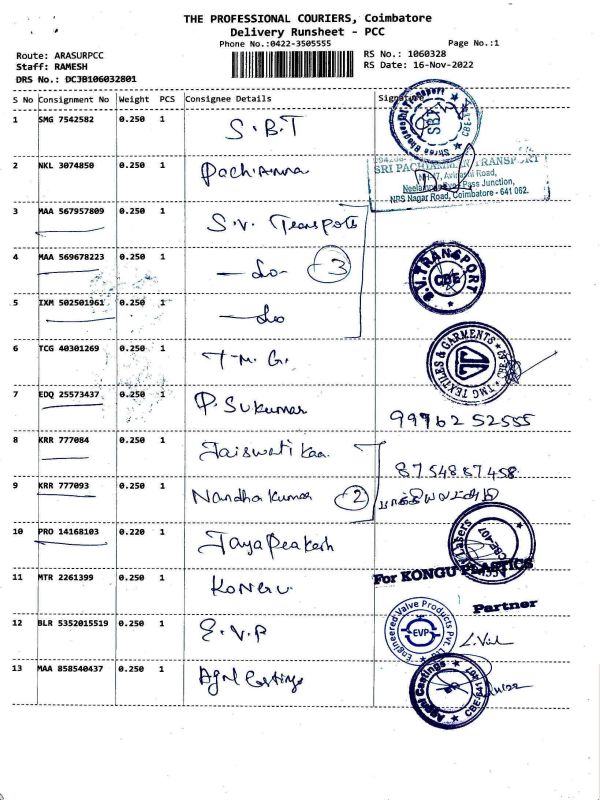 THE PROFESSIONAL COURIERS, Coimbatore
Delivery Runsheet - PCC
Phone No.:0422-3505555
Page No.:1
Route: ARASURPCC
RS No.: 1060328
Staff: RAMESH
RS Date: 16-Nov-2022
DRS No.: DCJB106032801
S No Consignment No Weight PCS Consignee Details Signature
1 SMG 7542582 0.250 1 S.B.T
Shree Bhagavathi Transport SBT CBE
2 NKL 3074850 0.250 1 Pachiamma
SRI PACHIAMMAN TRANSPORT
NH-47, Avinashi Road,
Neelampur Bye Pass Junction,
NPS Nagar Road, Coimbatore - 641 062.
3 MAA 567957809 0.250 1 S.V. Transports
4 MAA 569678223 0.250 1 -do- 3
S.V. TRANSPORT CBE
5 IXM 502501961 0.250 1 -do
6 TCG 40301269 0.250 1 T.M.G.
TMG TEXTILES & GARMENTS CBE-62
7 EDQ 25573437 0.250 1 P. Sukumar 99762 52555
8 KRR 777084 0.250 1 Jaiswati 8754887458
9 KRR 777093 0.250 1 Nandhakumar 2
10 PRO 14168103 0.220 1 Jayaprakash
Lasers CBE-407
11 MTR 2261399 0.250 1 Kongu
For KONGU PLASTICS
Partner
12 BLR 5352015519 0.250 1 E.V.P
Engineered Valve Products Pvt. Ltd. EVP
13 MAA 858540437 0.250 1 Agni Castings
Castings CBE-641 407